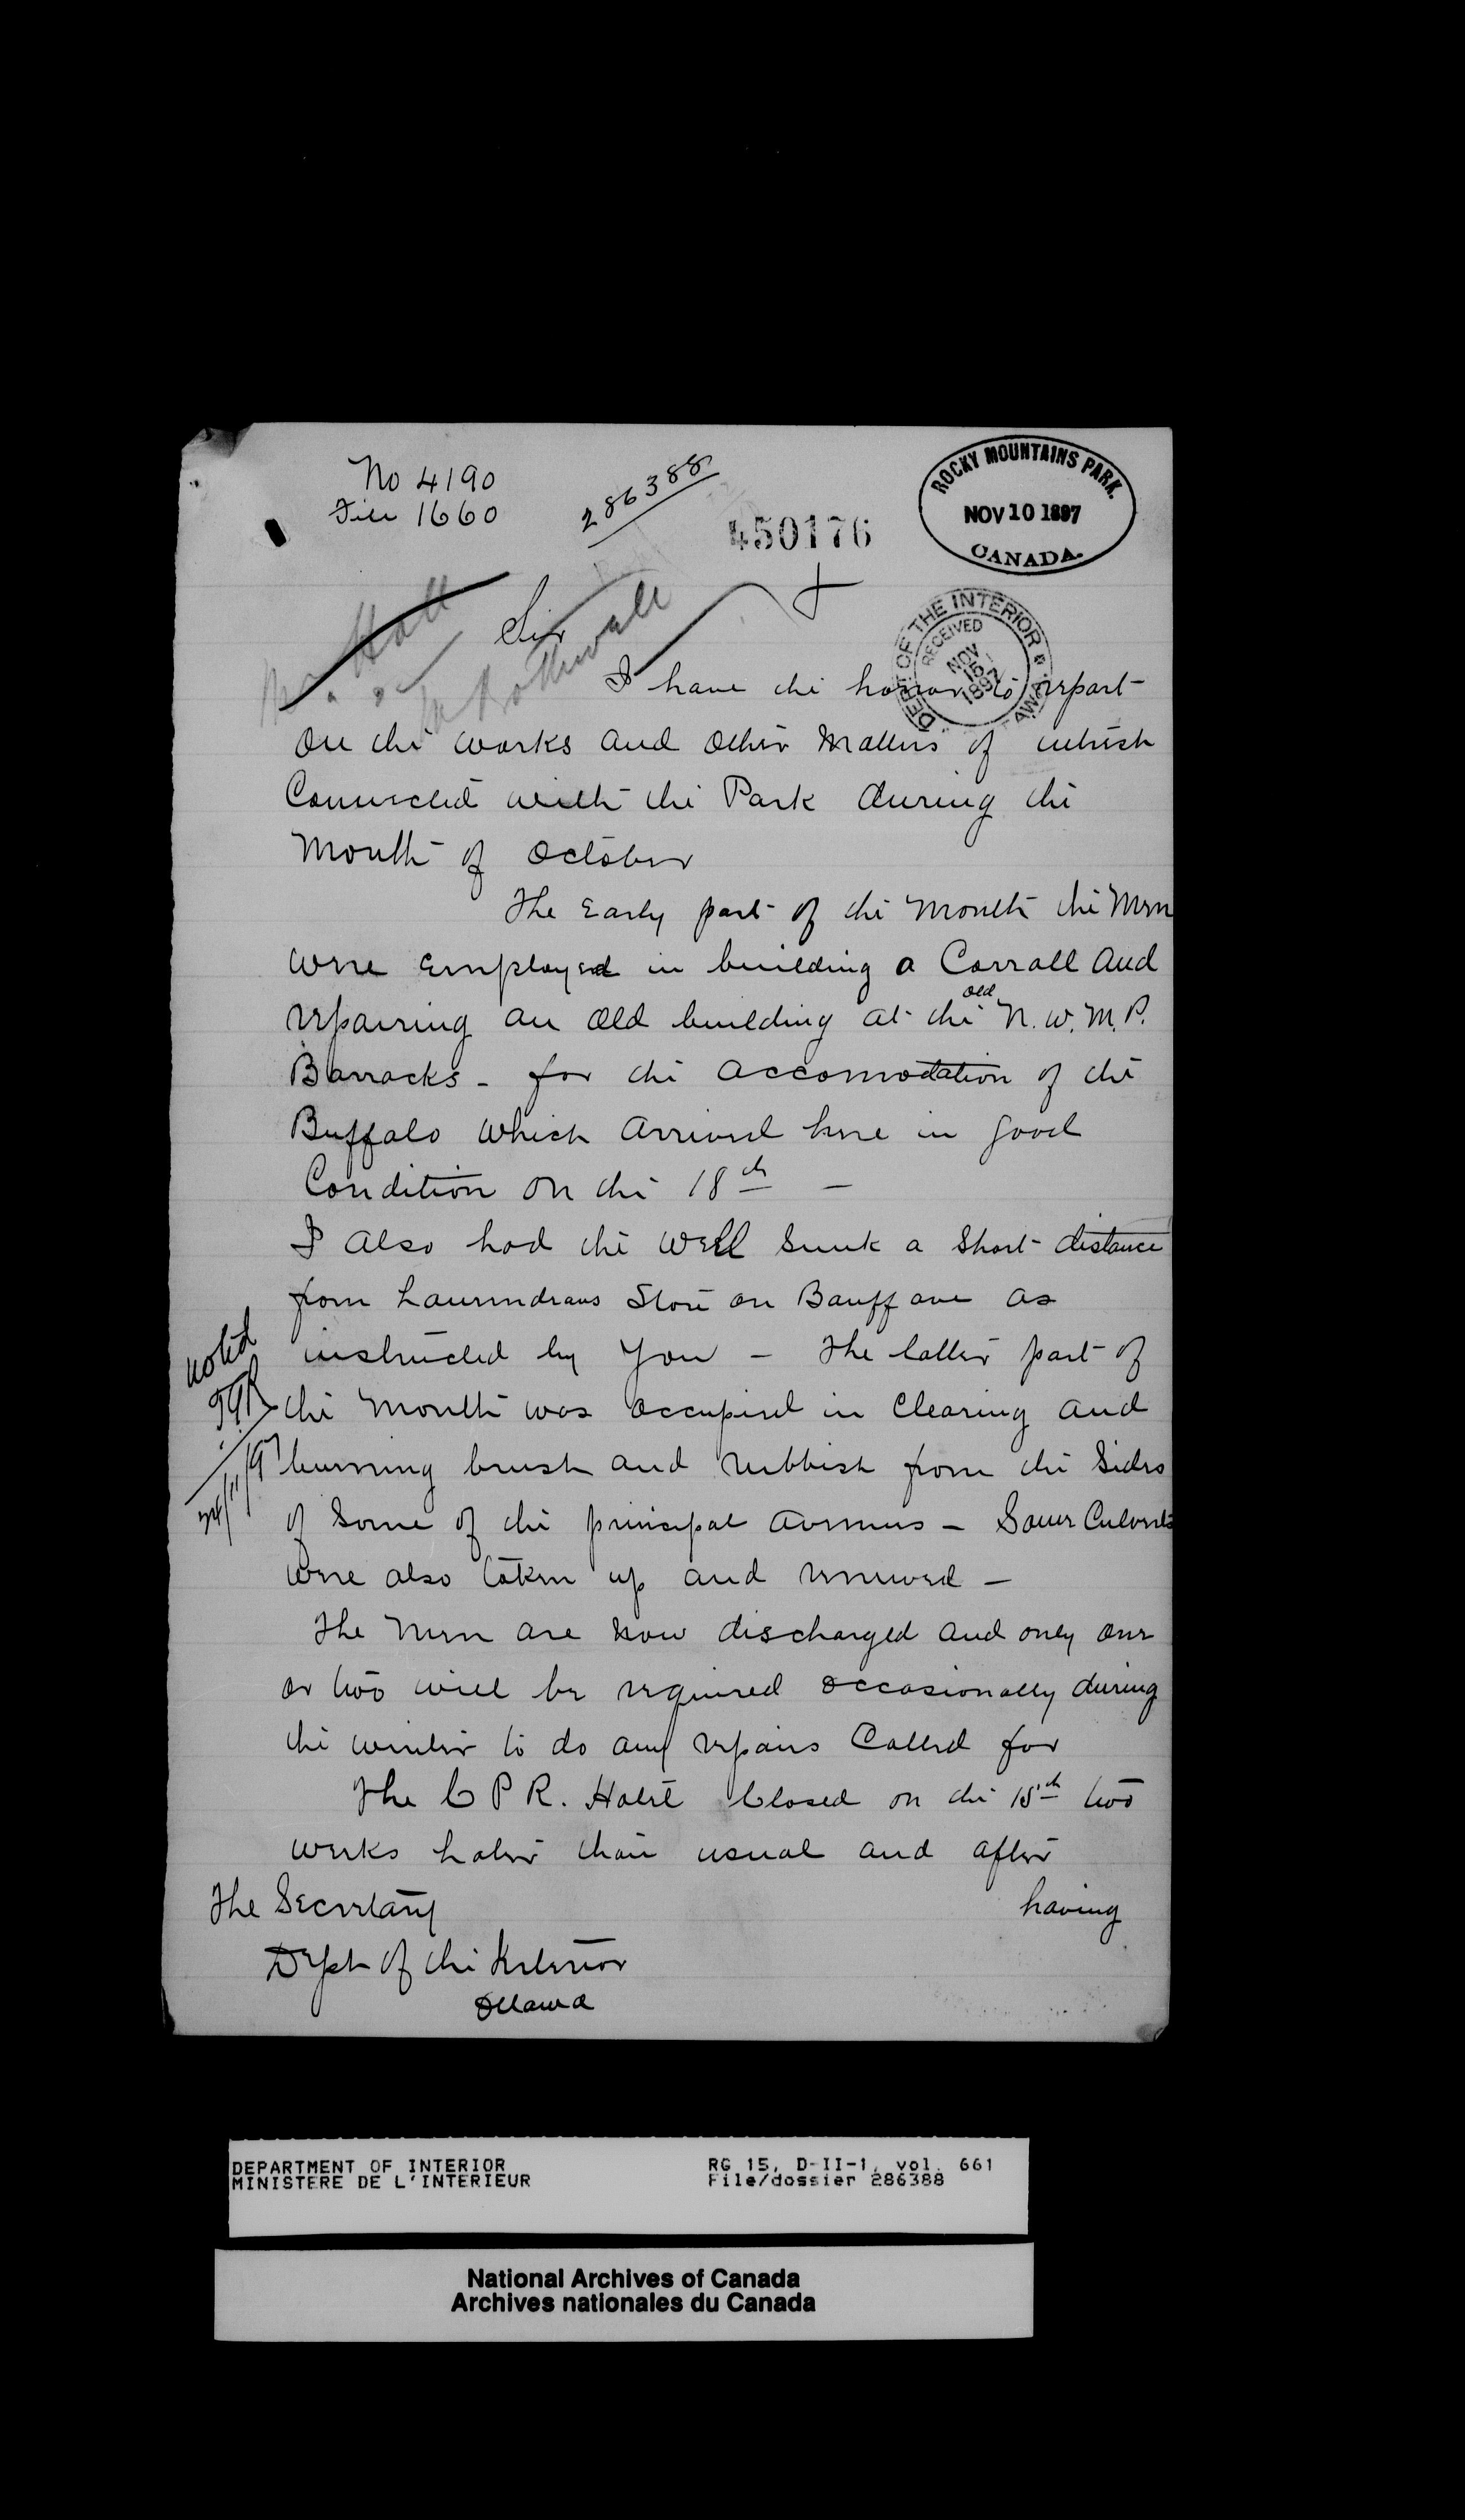 No 4190
File 1660
286388
450176
ROCKY MOUNTAINS PARK.
NOV 10 1897
CANADA.
Mr. Hall
Mr Rothwell
DEPT. OF THE INTERIOR
RECEIVED
NOV 15 1897
Sir
I have the honor to report
on the works and other matters of interest
Connected with the Park during the
Month of October
The Early part of the Month the Men
were Employed in building a Corrall and
repairing an old building at the old N. W. M. P.
Barracks - for the accomodation of the
Buffalo which arrived here in good
Condition on the 18th -
I also had the well sunk a short distance
from Store on Banff ave as
instructed by You - The latter part of
the Month was occupied in Clearing and
burning brush and rubbish from the sides
of some of the principal avenues - Some Culverts
were also taken up and renewed -
The Men are now discharged and only one
or two will be required occasionally during
the winter to do any repairs Called for
The C P R. Hotel Closed on the 15th two
weeks later than usual and after
having
The Secretary
Dept of the Interior
Ottawa
noted
24/11/97
DEPARTMENT OF INTERIOR
MINISTERE DE L'INTERIEUR
RG 15, D-II-1, vol. 661
File/dossier 286388
National Archives of Canada
Archives nationales du Canada